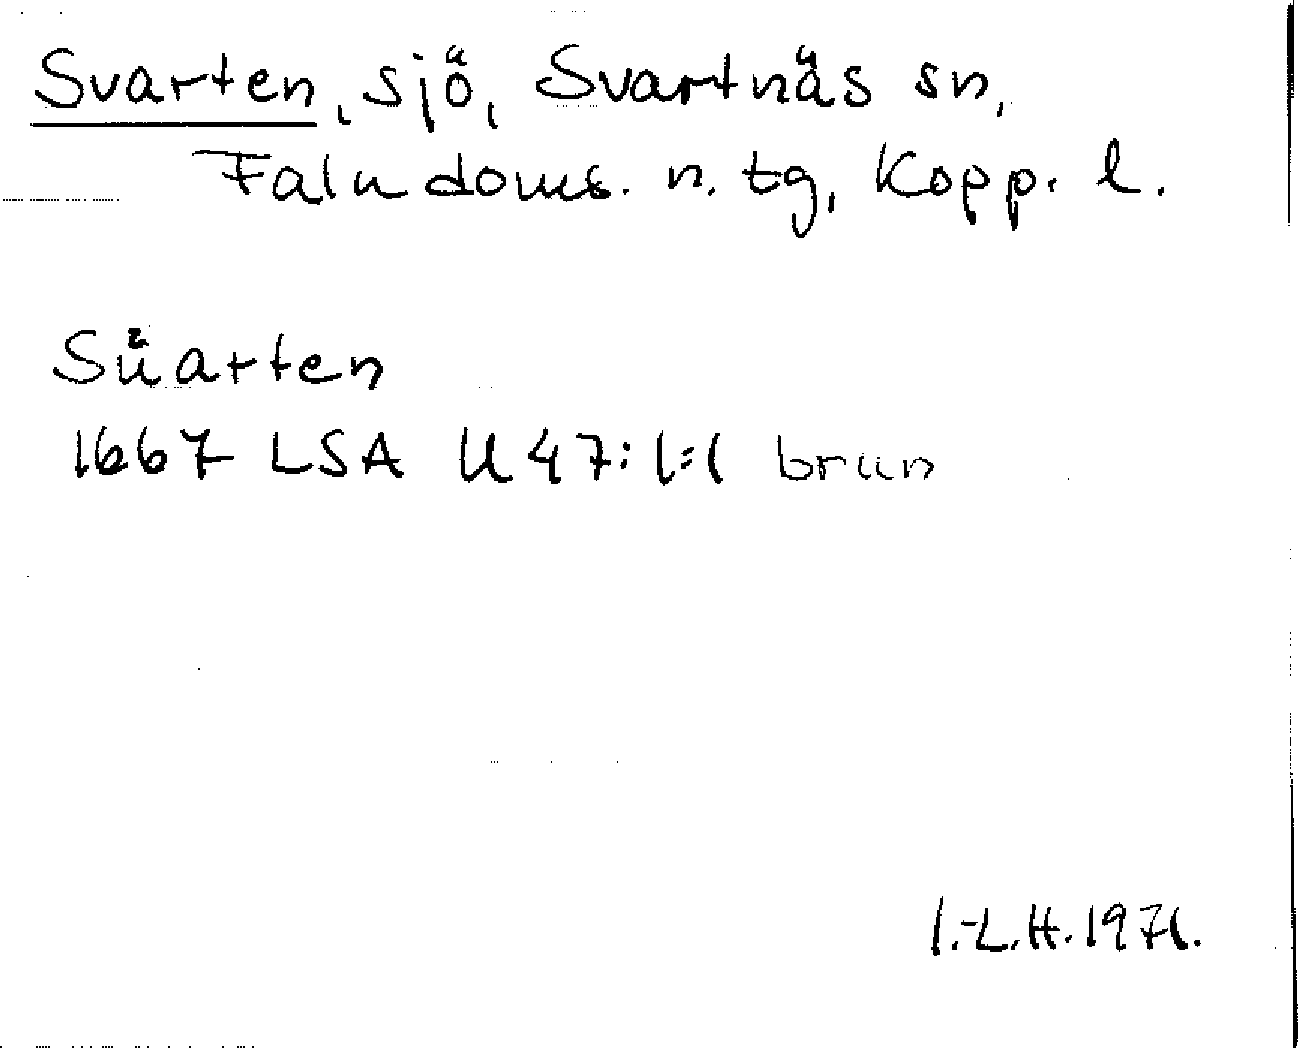 Svarten, sjö, Svartnäs sn,
Falu doms. n. tg, Kopp. l.
Süarten
1667 LSA U 47:1:1 brun
I.-L.H. 1971.